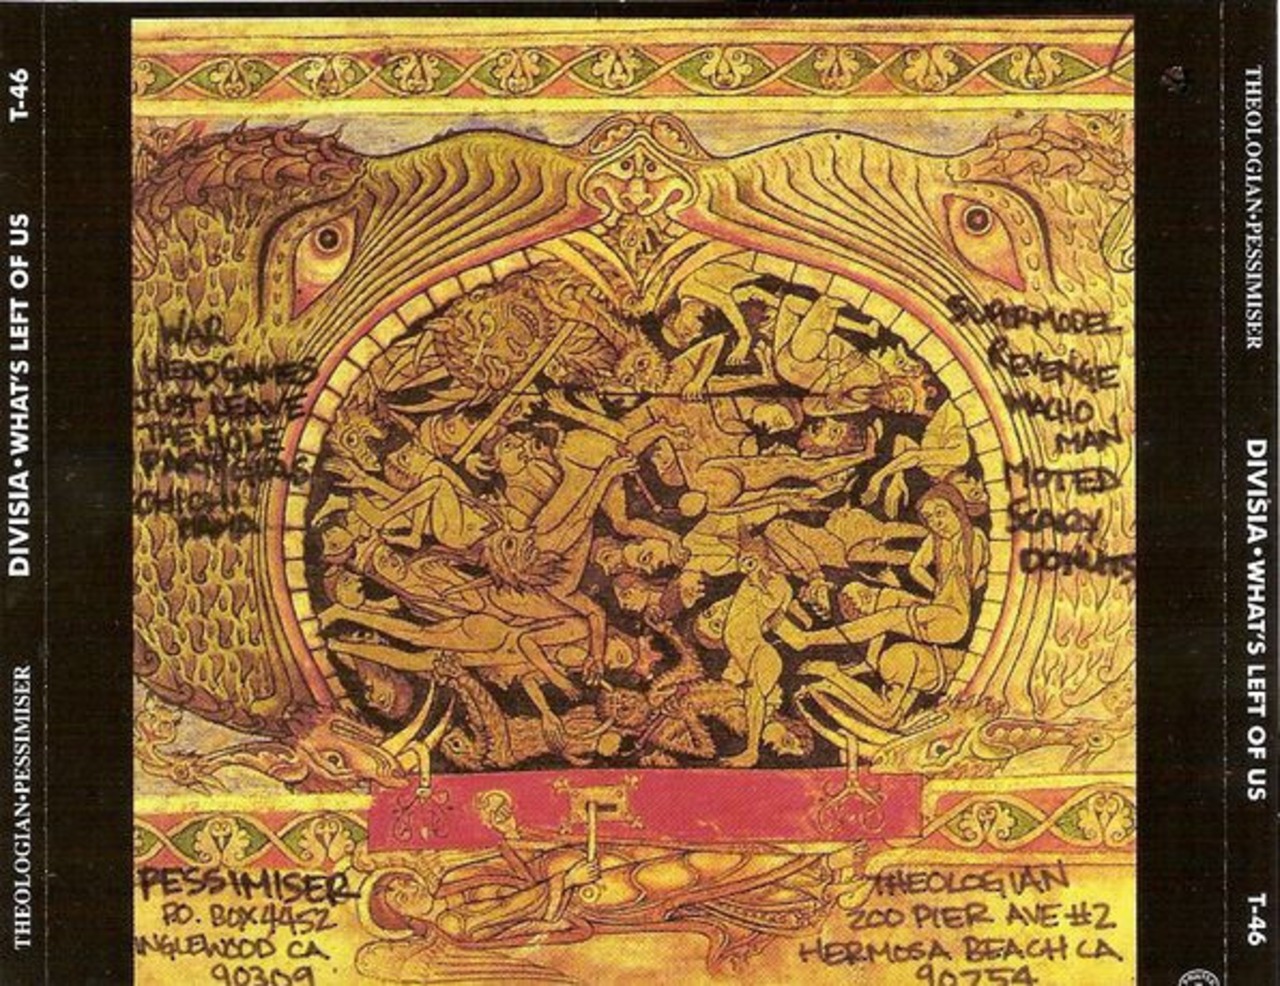 T-46
DIVISIA•WHAT'S LEFT OF US
THEOLOGIAN•PESSIMISER
WAR
HEADGAMES
JUST LEAVE
THE HOLE
PARTY GIRLS
CHICHI
MAMA
SUPERMODEL
REVENGE
MACHO
MAN
MOTED
SCARY
DONUTS
PESSIMISER
P.O. BOX 4452
INGLEWOOD CA
90309
THEOLOGIAN
200 PIER AVE #2
HERMOSA BEACH CA
90254
THEOLOGIAN•PESSIMISER
DIVISIA•WHAT'S LEFT OF US
T-46